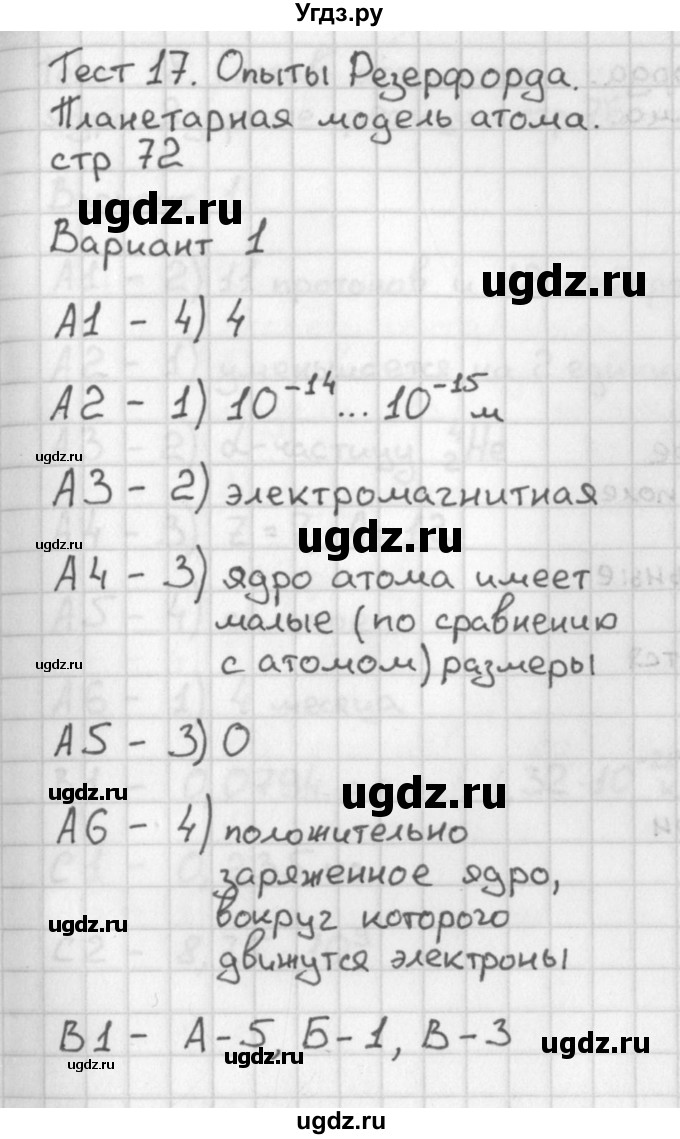 Угдз.ру
Тест 17. Опыты Резерфорда.
Планетарная модель атома.
стр 72
ugdz.ru
Вариант 1
ugdz.ru
А1 - 4) 4
А2 - 1) 10⁻¹⁴... 10⁻¹⁵ м
ugdz.ru
А3 - 2) электромагнитная
ugdz.ru
ugdz.ru
А4 - 3) ядро атома имеет
малые (по сравнению
ugdz.ru
с атомом) размеры
А5 - 3) 0
ugdz.ru
ugdz.ru
А6 - 4) положительно
заряженное ядро,
ugdz.ru
вокруг которого
движутся электроны
В1 - А-5, Б-1, В-3
ugdz.ru
ugdz.ru
ugdz.ru
ugdz.ru